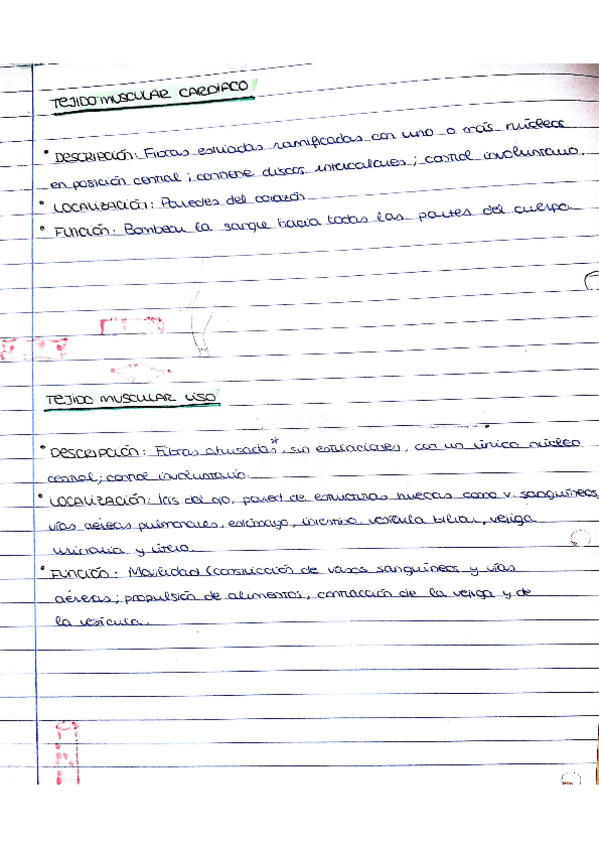 TEJIDO MUSCULAR CARDÍACO
• DESCRIPCIÓN: Fibras estriadas ramificadas con uno o más núcleos
en posición central; contiene discos intercalares; control involuntario.
• LOCALIZACIÓN: Paredes del corazón
• FUNCIÓN: Bombear la sangre hacia todas las partes del cuerpo.
TEJIDO MUSCULAR LISO
• DESCRIPCIÓN: Fibras ahusadas*, sin estriaciones, con un único núcleo
central; control involuntario.
• LOCALIZACIÓN: Iris del ojo, pared de estructuras huecas como v. sanguíneos,
vías aéreas pulmonares, estómago, intestino, vesícula biliar, vejiga
urinaria y útero.
• FUNCIÓN: Motilidad (constricción de vasos sanguíneos y vías
aéreas; propulsión de alimentos, contracción de la vejiga y de
la vesícula.